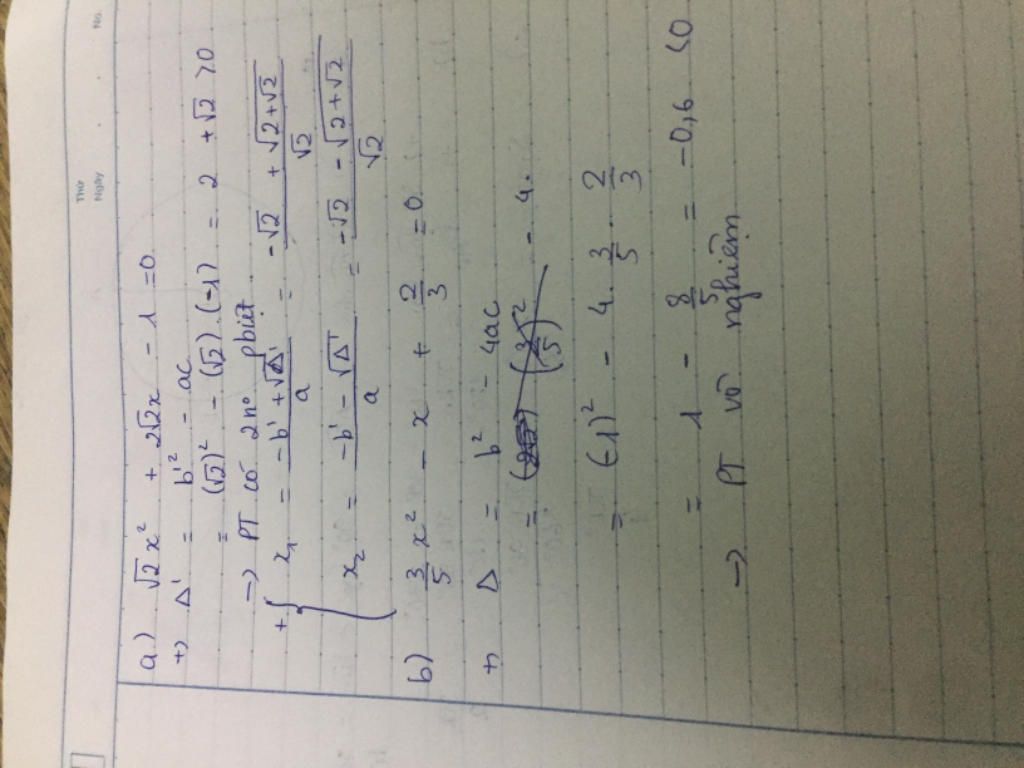 Thứ
Ngày
No.
a) √2x² + 2√2x - 1 = 0
+) Δ' = b'² - ac
= (√2)² - (√2).(-1) = 2 + √2 > 0
→ PT có 2nº pbiệt
+ { x₁ = (-b' + √Δ')/a = (-√2 + √(2+√2))/√2
x₂ = (-b' - √Δ')/a = (-√2 - √(2+√2))/√2
b) 3/5 x² - x + 2/3 = 0
+) Δ = b² - 4ac
= (3/5)² - 4.
= (-1)² - 4. 3/5 . 2/3
= 1 - 8/5 = -0,6 < 0
→ PT vô nghiệm